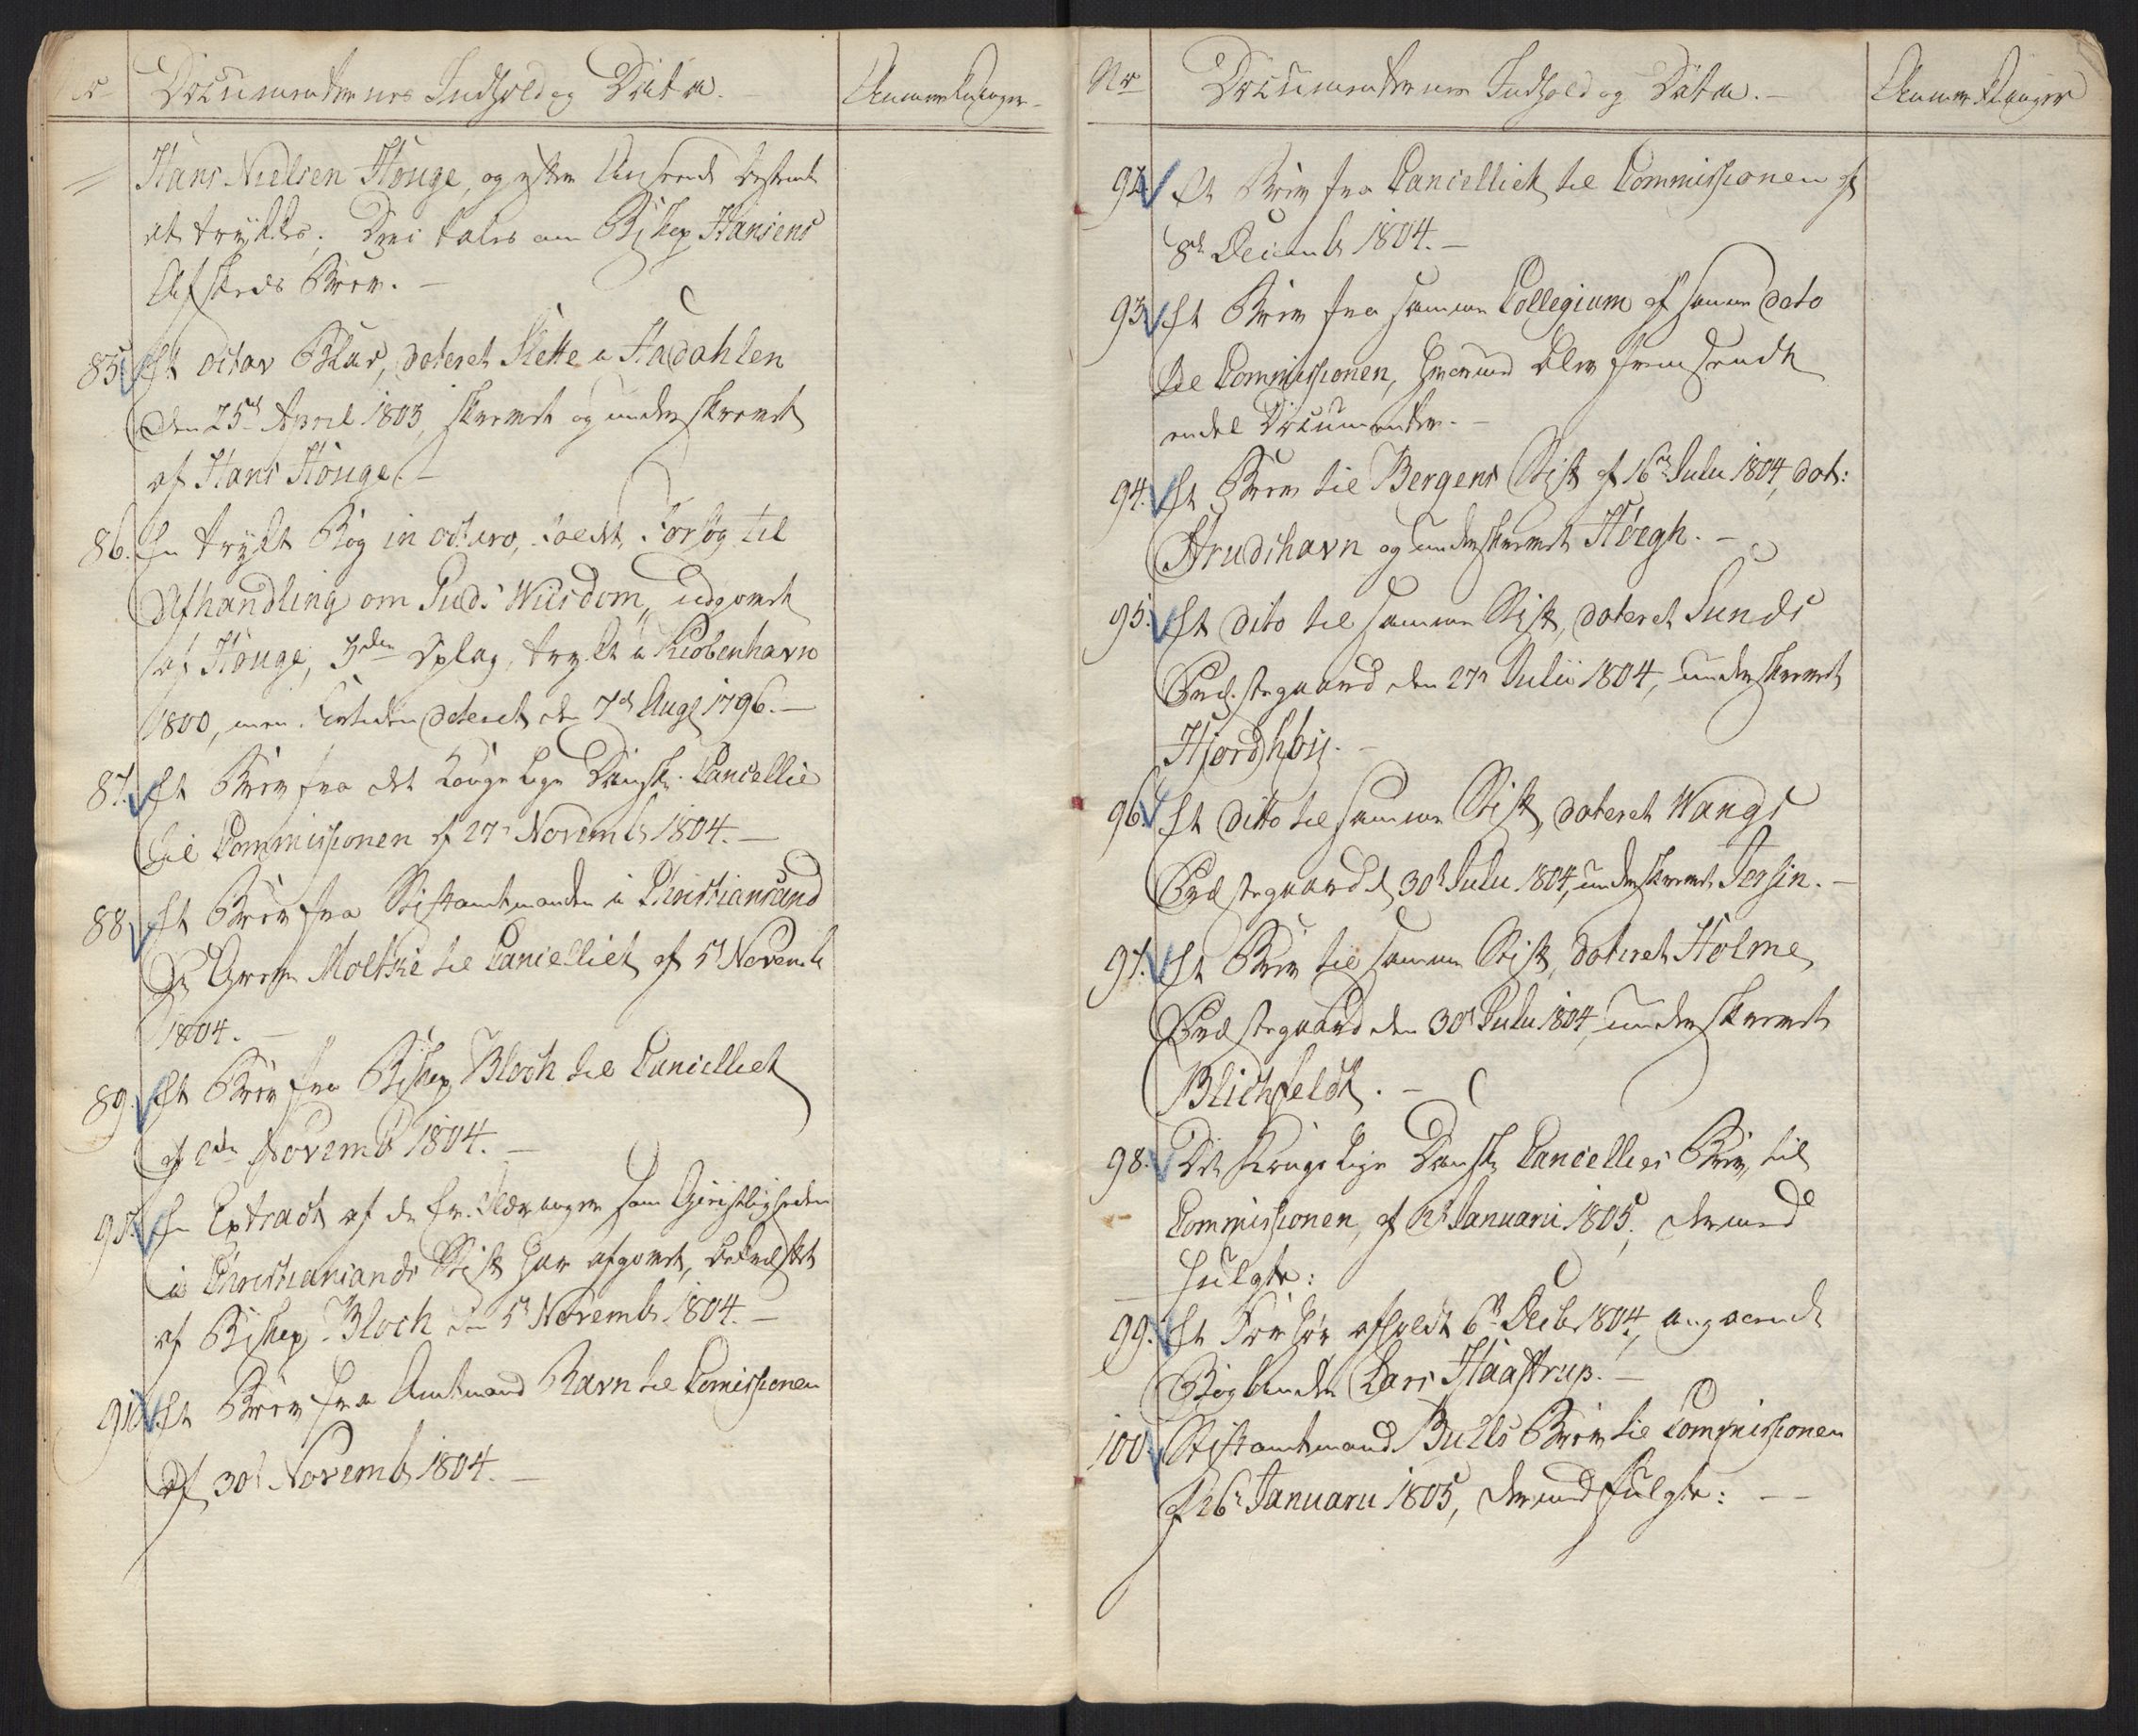 Documenternes Indhold og Data.
Anmerkninger
Hans Nielsen Houge, og efter Anseende bestemt
at trykkes; Deri tales om Biskop Hansens
Afskeds Brev.
85. Et octav Blad, dateret Slette i Haldahlen
den 25d April 1803, skrevet og underskrevet
af Hans Houge.
86. En trykt Bog in octavo, kaldt, Forsøg til
Afhandling om Guds Wiisdom, udgivet
af Houge, 3die Oplag, trykt i Kiøbenhavn
1800, men Fortalen dateret den 7d Aug. 1796.
87. Et Brev fra det Kongelige Danske Cancellie
til Commissionen af 27d Novemb. 1804.
88. Et Brev fra Stiftamtmanden i Christiansand
Hr Greve Moltke til Cancelliet af 5d Novemb.
1804.
89. Et Brev fra Biskop Bloch til Cancelliet
af Novemb 1804.
90. En Extract af de Erklæringer som Geistligheden
i Christiansands Stift har afgivet, bekræftet
af Biskop Bloch den 5d Novemb. 1804.
91. Et Brev fra Amtmand Ravn til Comissionen
af 30d Novemb. 1804.
Nr Documenternes Indhold og Data.
Anmerkninger
92. Et Brev fra Cancelliet til Commissionen af
8d Decemb. 1804.
93. Et Brev fra samme Collegium af samme dato
til Commissionen, hvormed blev fremsendt
endel Documenter.
94. Et Brev til Bergens Stift af 16d Julii 1804, dat:
Strudshavn og underskrevet Høegh.
95. Et dito til samme Stift, dateret Sunds
Præstegaard den 27d Julii 1804, underskrevet
Hjordhøy.
96. Et ditto til samme Stift, dateret Wangs
Præstegaard d. 30d Julii 1804, underskrevet Jersin.
97. Et Brev til samme Stift, dateret Holme
Præstegaard den 30d Julii 1804, underskrevet
Blichfeldt.
98. Det Kongelige Danske Cancellies Brev til
Commissionen, af Januarii 1805, dermed
fulgte:
99. Et Forhør afholdt 6d Decb. 1804, angaaende
Bogbinder Lars Haastrup.
100. Stiftamtmand Bulls Brev til Commissionen
af Januarii 1805, dermed fulgte: